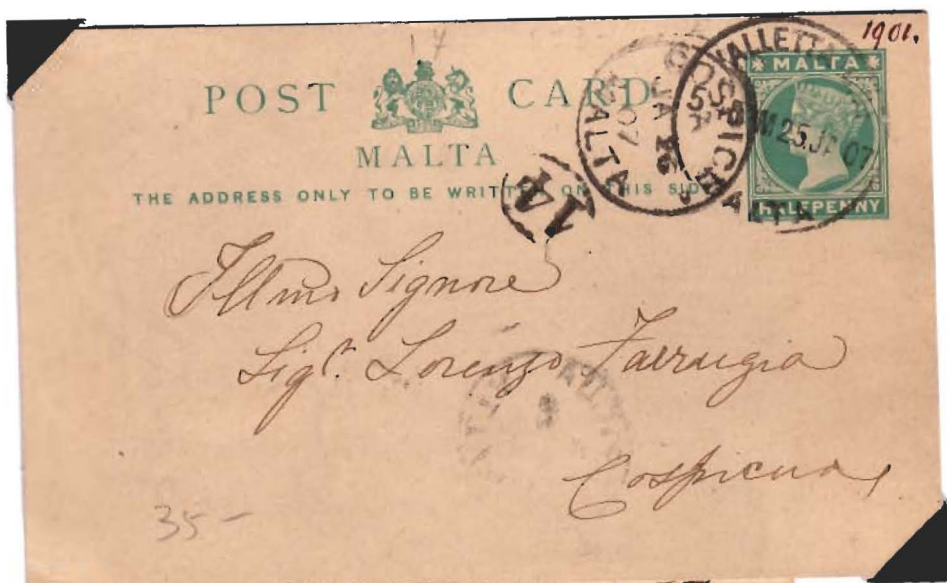 1901.
POST CARD
MALTA
THE ADDRESS ONLY TO BE WRITTEN ON THIS SIDE.
VALLETTA
25 JA 07
MALTA
COSPICUA
5 A
JA 26
07
MALTA
MALTA
HALFPENNY
Illmo Signore
Sigr. Lorenzo Farrugia
Cospicua
35-